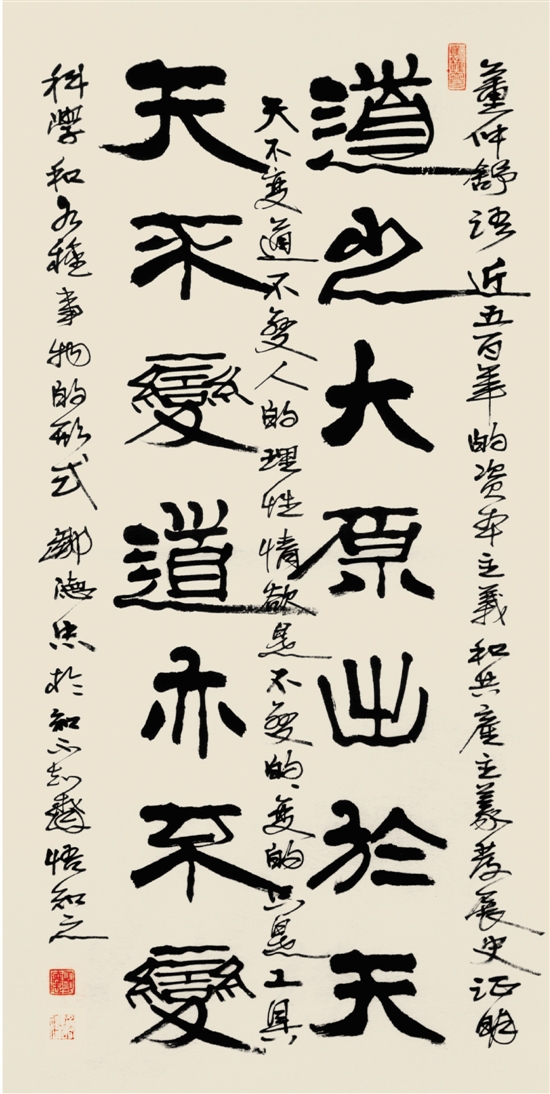 董仲舒语近五百年的资本主義和共産主義发展史证明
道之大原出於天
天不变道不變人的理性情欲是不變的、变的只是工具
天不變道亦不變
科學和各種事物的形式 鄒德忠於知不知齋悟知之